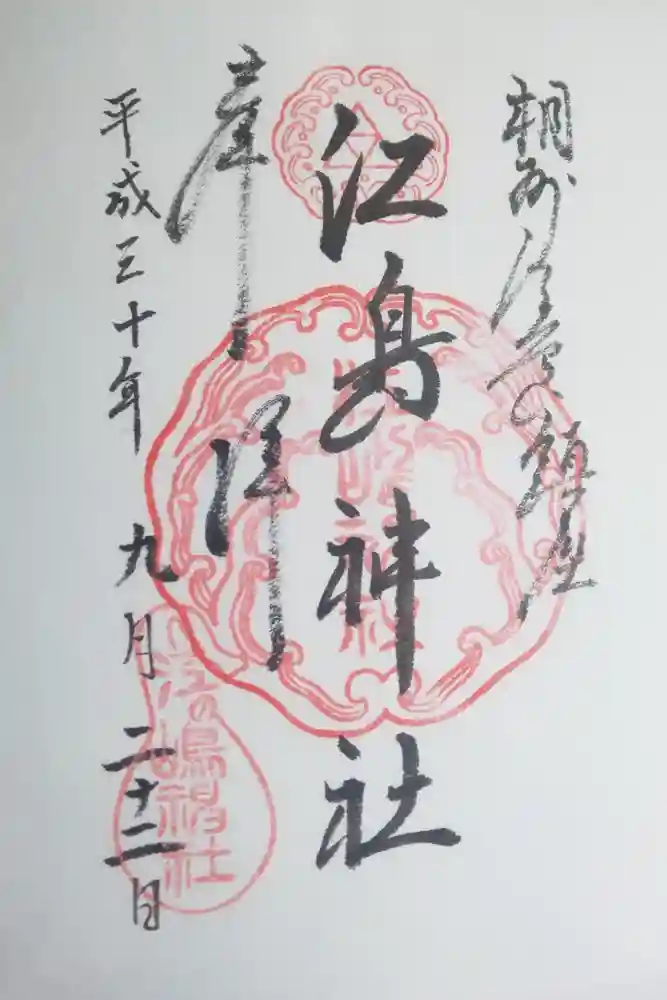 相州江島の鎮座
江島神社
奉拝
平成三十年九月二十二日
江の嶋神社